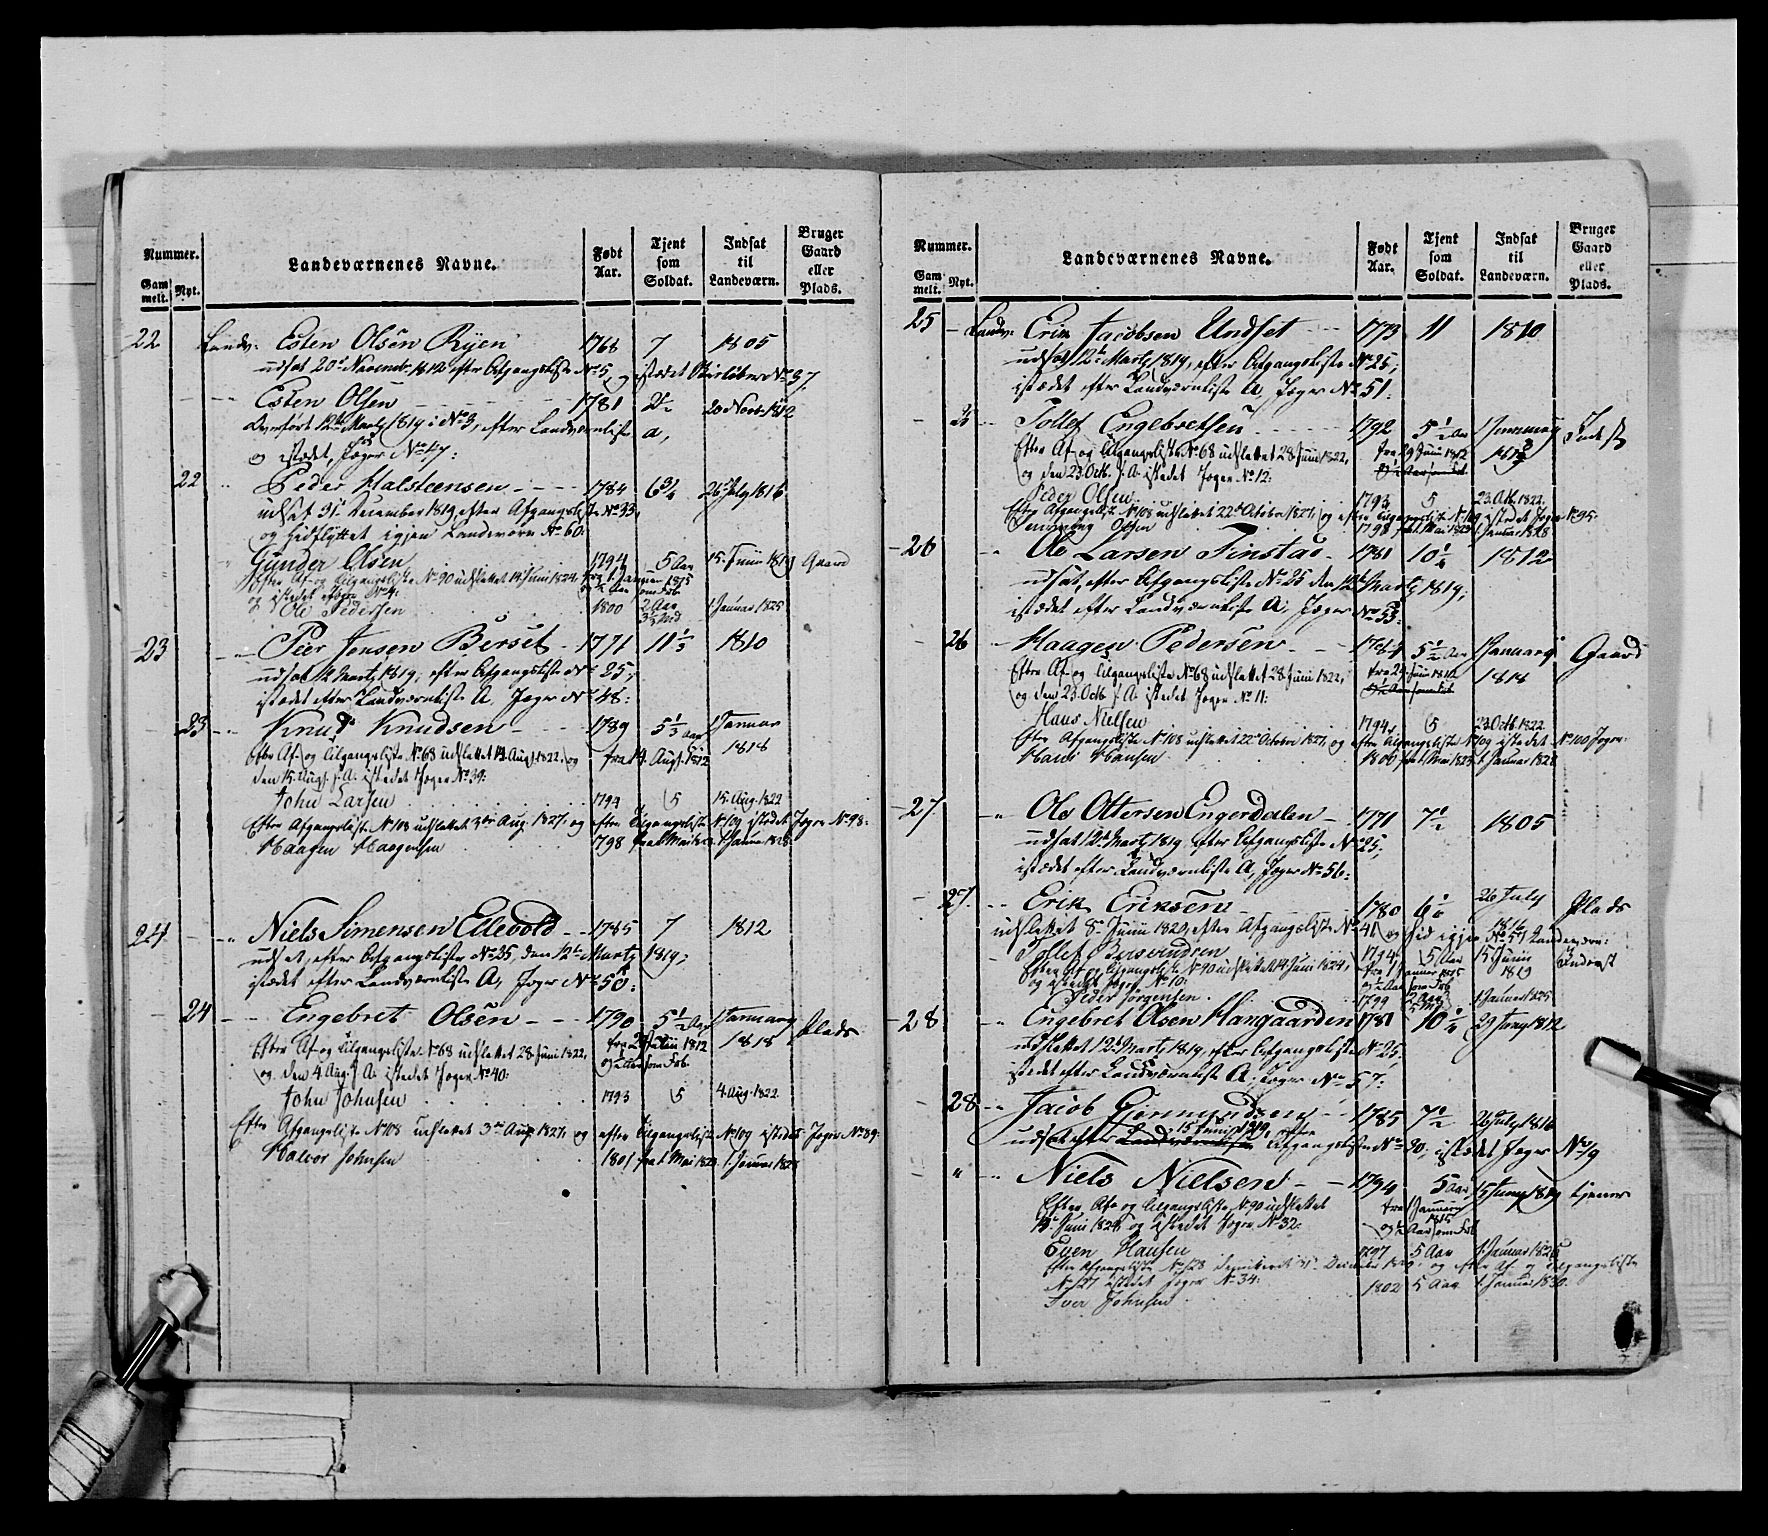 Nummer.
Gam
melt.
Nyt.
Landeværnenes Navne.
Født
Aar.
Tjent
som
Soldat.
Indsat
til
Landeværn.
Bruger
Gaard
eller
Plads.
22 Landv. Esten Olsen Ryen 1768 7 1805
udsat 20de Novembr 1812 efter Afgangsliste No 5, og istædet Skieløber No 37.
Esten Olsen 1781 20 Novb. 1812
Overført 12te Martz 1819 i No 3, efter Landværnliste a,
og istædet, Jæger No 47:
22 Peder Halsteensen 1784 6 3/4 26 July 1816
udsat 31. December 1819 efter Afgangsliste No 33,
og hidflyttet igjen Landværn No 60.
Gunder Olsen 1794 5 Aar 15. Junii 1819 Gaard
Efter Af- og Tilgangsliste No 90 udslettet 14 Juni 1824 fra 1 Januar 1815
Ole Pedersen 1800 2 Aar 1 Januar 1825
23 Peer Jensen Berset 1771 11 1/3 1810
udsat 12 Martz 1819, efter Afgangsliste No 25,
istædet efter Landværnliste A, Jæger No 48:
23 Knud Knudsen 1789 5 1/3 Aar 1 Januar
1818
Efter Af- og Tilgangsliste No 68 udslettet 14. Aug. 1822, og fra 14 Augt. 1812
den 15. Augt. s. A. istedet Jæger No 39:
John Larsen 1794 5 15. Aug. 1822
Efter Afgangsliste No 108 udslettet 3die Aug. 1827, og efter Tilgangsliste No 109 istedet Jæger No 98:
Haagen Haagensen 1798 fra 1 Mai 1823 1. Januar 1828
24 Niels Simensen Edevold 1785 7 1812
udsat, efter Afgangsliste No 25, den 12te Martz 1819,
istædet efter Landværnliste A, Jæger No 50:
24 Engebret Olsen 1790 5 1/2 Aar 1 Januarg Plads
1818
Efter Af- og Tilgangsliste No 68 udslettet 28 Juni 1822,
og den 4 Aug. s. A. istedet Jæger No 40:
John Johnsen 1793 5 4 Aug. 1822
Efter Afgangsliste No 108 udslettet 3die Aug. 1827, og efter Tilgangsliste No 109 istedet Jæger No 89:
Halvor Johnsen 1801 fra 1 Mai 1823 1. Januar 1828
Nummer.
Gam
melt.
Nyt.
Landeværnenes Navne.
Født
Aar.
Tjent
som
Soldat.
Indsat
til
Landeværn.
Bruger
Gaard
eller
Plads.
25 Landv. Erik Jacobsen Undset 1773 11 1810
udsat 12te Martz 1819, efter Afgangsliste No 25,
istædet efter Landværnliste A, Jæger No 51:
25 Tollef Engebretsen 1792 5 1/2 Aar 1 Januarg
Efter Af- og Tilgangsliste No 68 udslettet 28 Juni 1822, fra 29 Juni 1812
og den 23 Octb. s. A. istedet Jæger No 12:
Peder Olsen 1793 5 23. Octb. 1822
Efter Afgangsliste No 108 udslettet 22de October 1827, og efter Tilgangsliste No 109 istedet Jæger No 95:
Olsen 1798 fra 1. Mai 1823 1. Januar 1828
26 Ole Larsen Finstad 1781 10 1/4 1812
udsat, efter Afgangsliste No 25 den 12te Martz 1819,
istædet efter Landværnliste A, Jæger No 53:
26 Haagen Pedersen 5 1/2 Aar 1 Januarg Gaard
1818
Efter Af- og Tilgangsliste No 68 udslettet 28 Juni 1822,
og den 23 Octb. s. A. istedet Jæger No 11:
Hans Nielsen 1794 5 23 Octb. 1822
Efter Afgangsliste No 108 udslettet 22de October 1827, og efter Tilgangsliste No 109 istedet No 100 Jæger:
Hans Hansen 1800 fra 1. Mai 1823 1. Januar 1828
27 Ole Ottersen Engerdalen 1771 7 1/2 1805
udsat 12te Martz 1819 efter Afgangsliste No 25,
istædet efter Landværnliste A, Jæger No 56:
27. Erik Eriksen 1780 26 July Plads
1816
udslettet 8de Junii 1820, efter Afgangsliste No 41, og hid igjen No 57 Landeværn:
Tollef 1794 5 Aar 15 Junii Inderst
1819
Efter Af- og Tilgangsliste No 90 udslettet 14 Juni 1824, fra 1 Januar 1815
og istedet Jæger No 10:
Peder Jørgensen 1799 2 Aar 1 Januar 1825
28 Engebret Olsen Haugaarden 1781 10 1/4 29 Juny 1812
udslettet 12te Martz 1819, efter Afgangsliste No 25,
istedet efter Landværnliste A, Jæger No 57:
28 Jacob Gjermundsen 1785 7 1/2 26 July 1816
15 Junii 1819, efter
udsat efter Landværnliste Afgangslisten No 30, istædet Jæger No 19
Niels Nielsen 1794 5 Aar 15 Juny 1819 tjener
Efter Af- og Tilgangsliste No 90 udslettet fra 1 Januar 1815
14 Juni 1824, og istedet Jæger No 32: og 1/2 Aar som Frb.
Even Hansen 1797 5 Aar 1. Januar 1825
Efter Afgangsliste No 123 31te December og efter Af- og Tilgangsliste
No 127 istedet Jæger No 34:
Iver Johnsen 1802 5 Aar 1. Januar 1830.